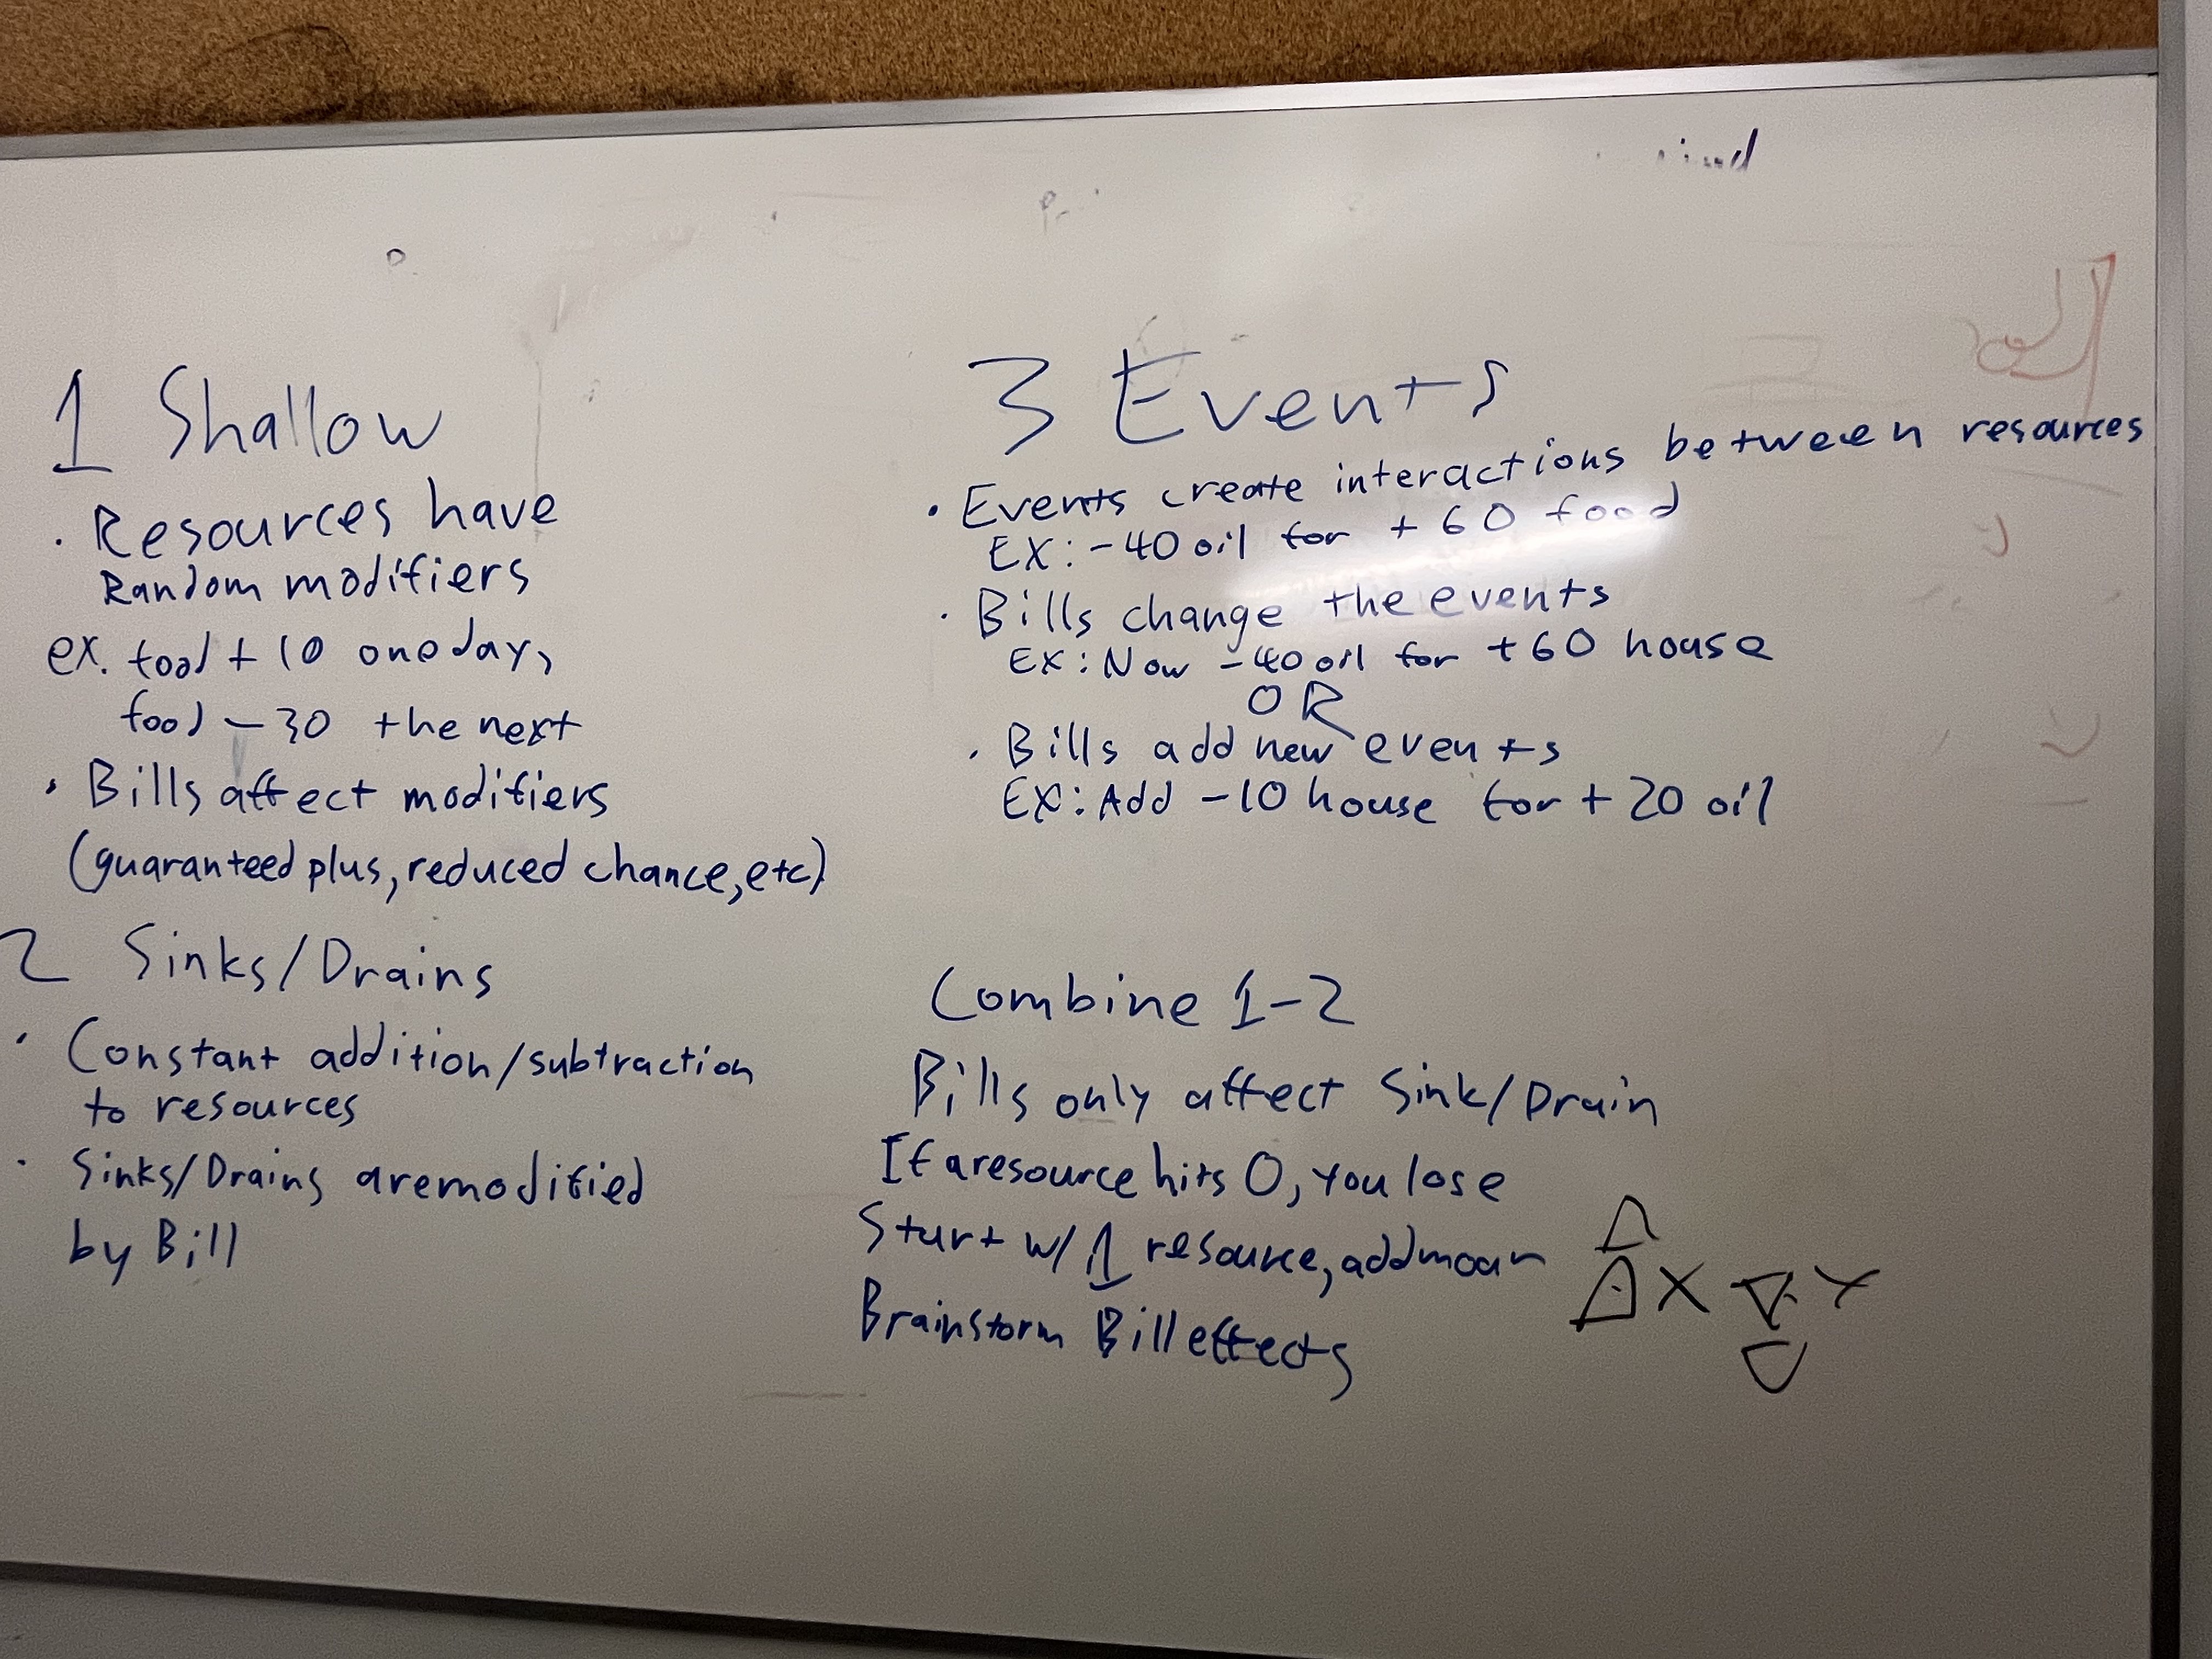 1 Shallow
· Resources have
Random modifiers
ex. food + 10 one day,
food - 30 the next
· Bills affect modifiers
(guaranteed plus, reduced chance, etc)
2 Sinks/Drains
· Constant addition/subtraction
to resources
· Sinks/Drains are modified
by Bill
3 Events
· Events create interactions between resources
EX: -40 oil for +60 food
· Bills change the events
EX: Now -40 oil for +60 house
OR
· Bills add new events
EX: Add -10 house for +20 oil
Combine 1-2
Bills only affect Sink/Drain
If a resource hits 0, you lose
Start w/ 1 resource, add moar
Brainstorm Bill effects
X